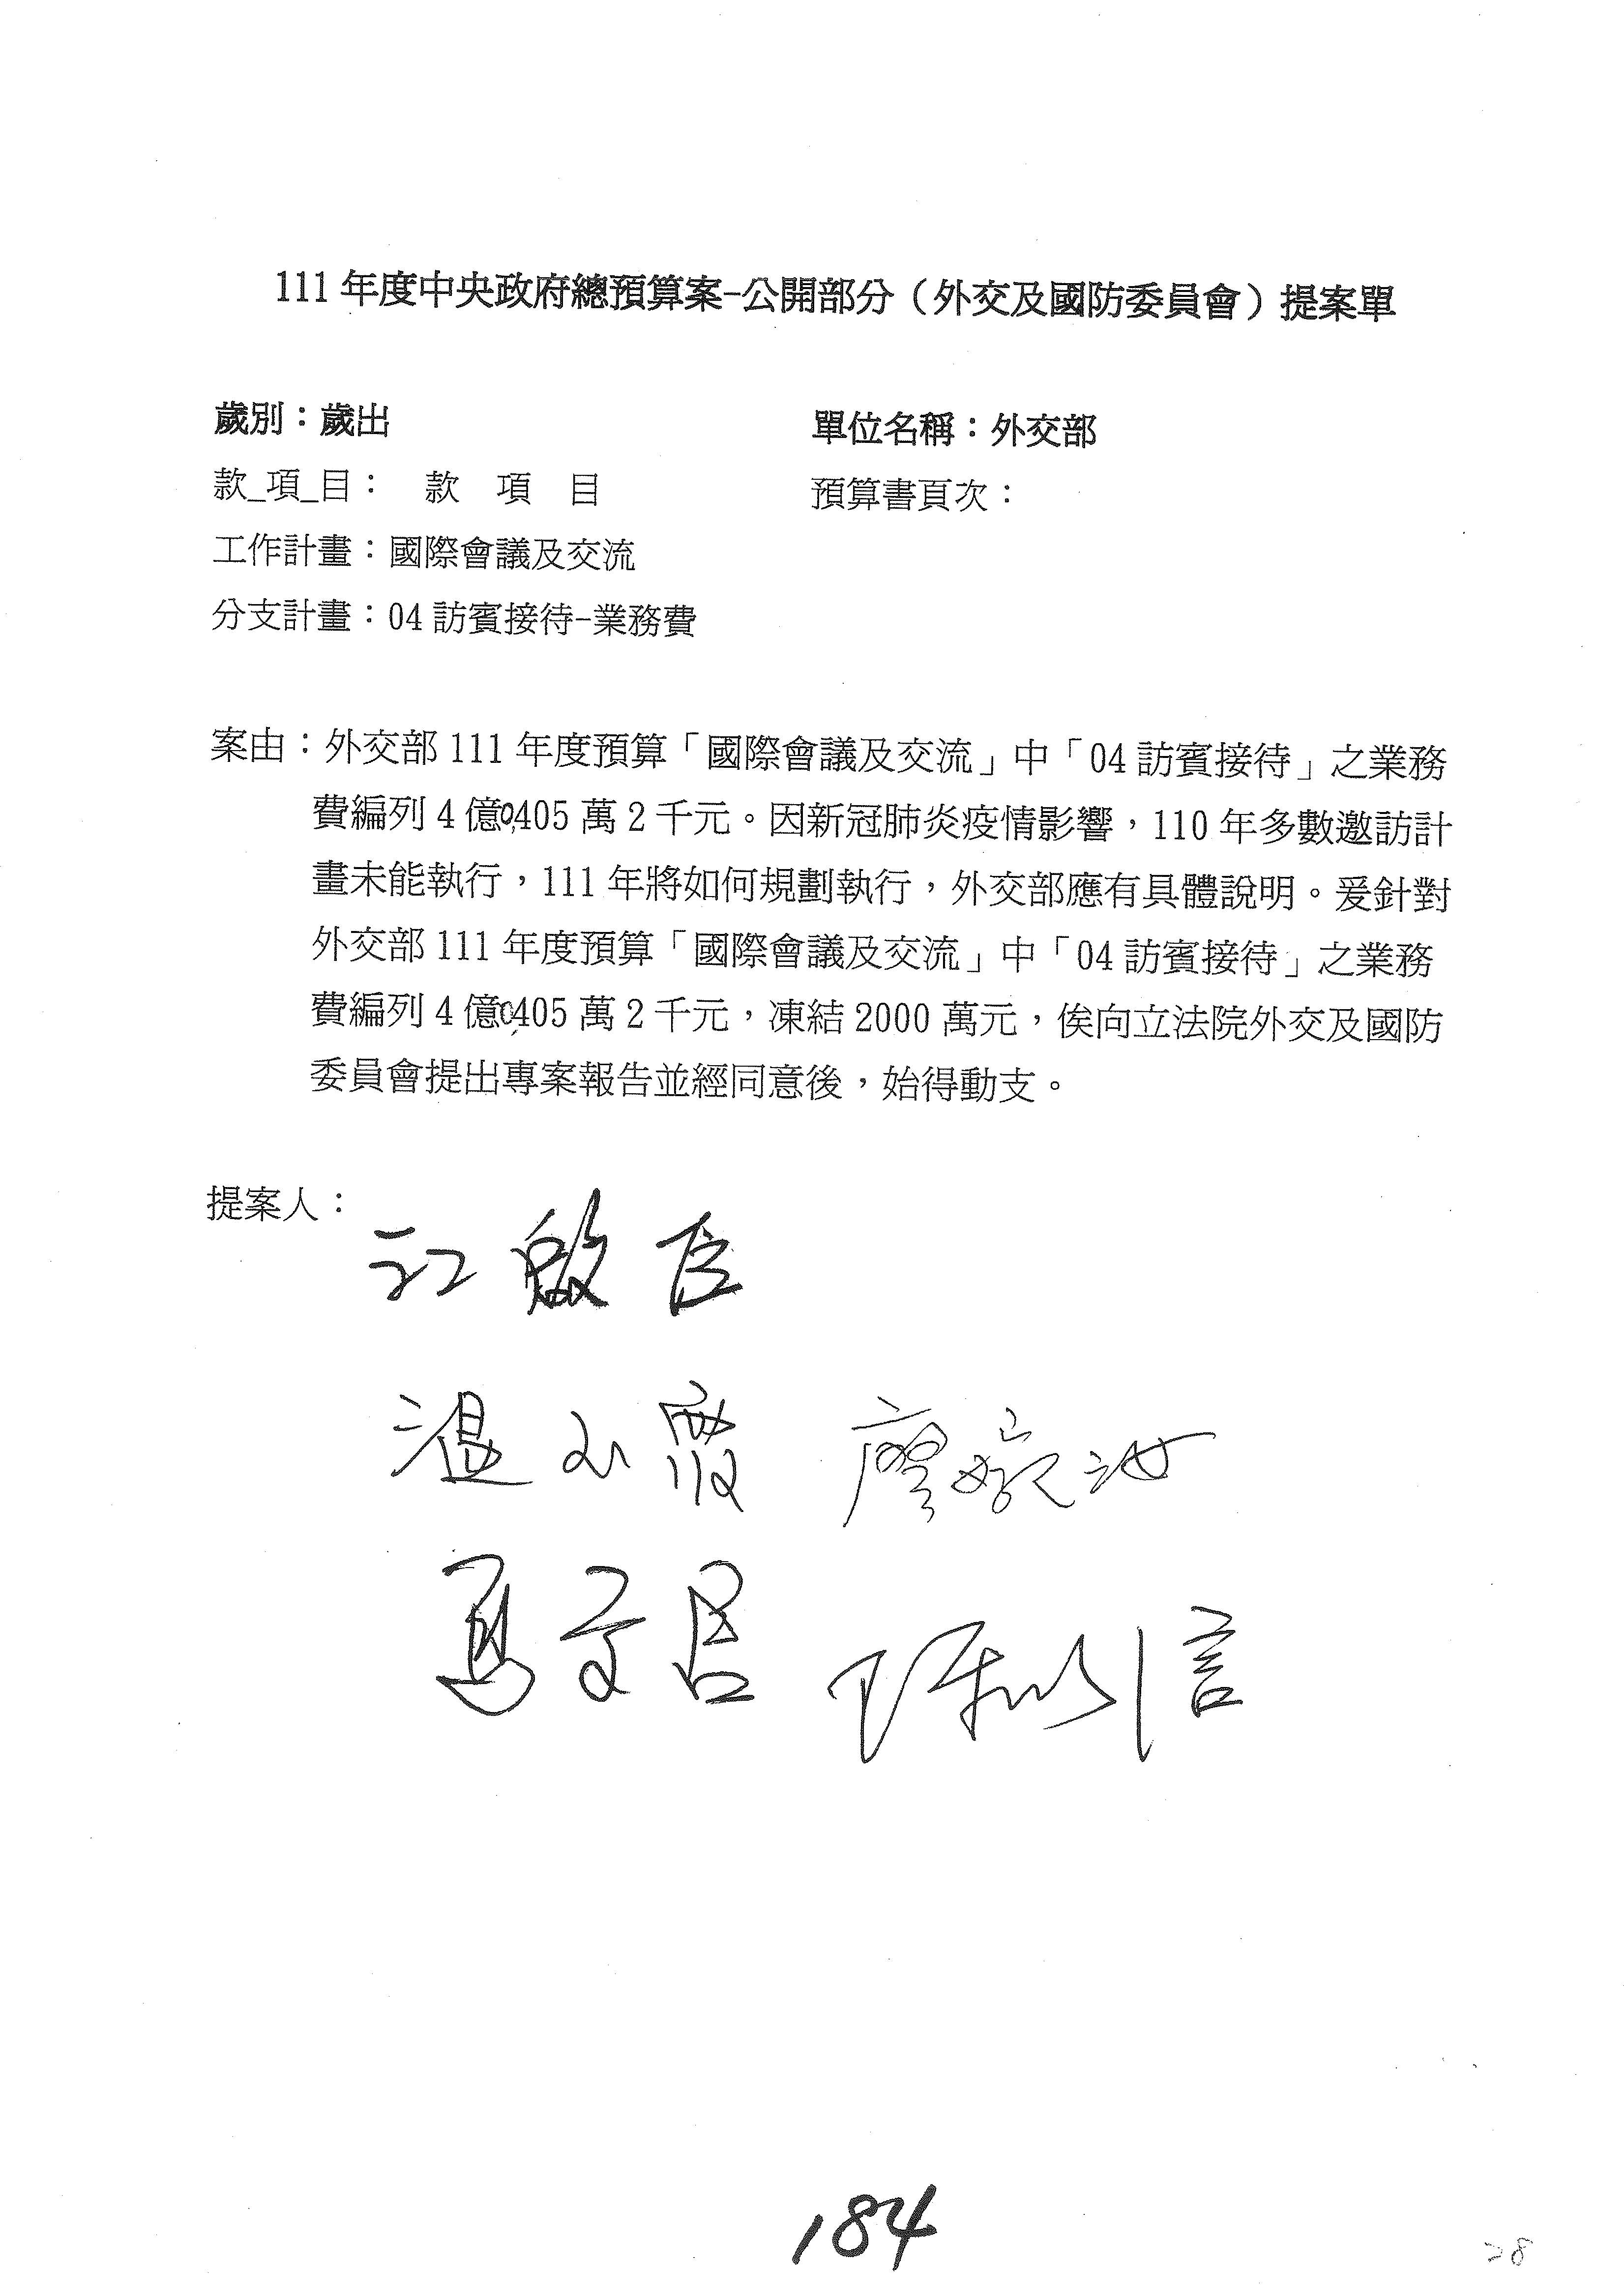 111年度中央政府總預算案-公開部分（外交及國防委員會）提案單
歲別：歲出
單位名稱：外交部
款_項_目： 款 項 目
預算書頁次：
工作計畫：國際會議及交流
分支計畫：04訪賓接待-業務費
案由：外交部111年度預算「國際會議及交流」中「04訪賓接待」之業務
費編列4億0,405萬2千元。因新冠肺炎疫情影響，110年多數邀訪計
畫未能執行，111年將如何規劃執行，外交部應有具體說明。爰針對
外交部111年度預算「國際會議及交流」中「04訪賓接待」之業務
費編列4億0,405萬2千元，凍結2000萬元，俟向立法院外交及國防
委員會提出專案報告並經同意後，始得動支。
提案人：
江啟臣
溫玉霞 廖婉汝
馬文君 陳以信
184
28